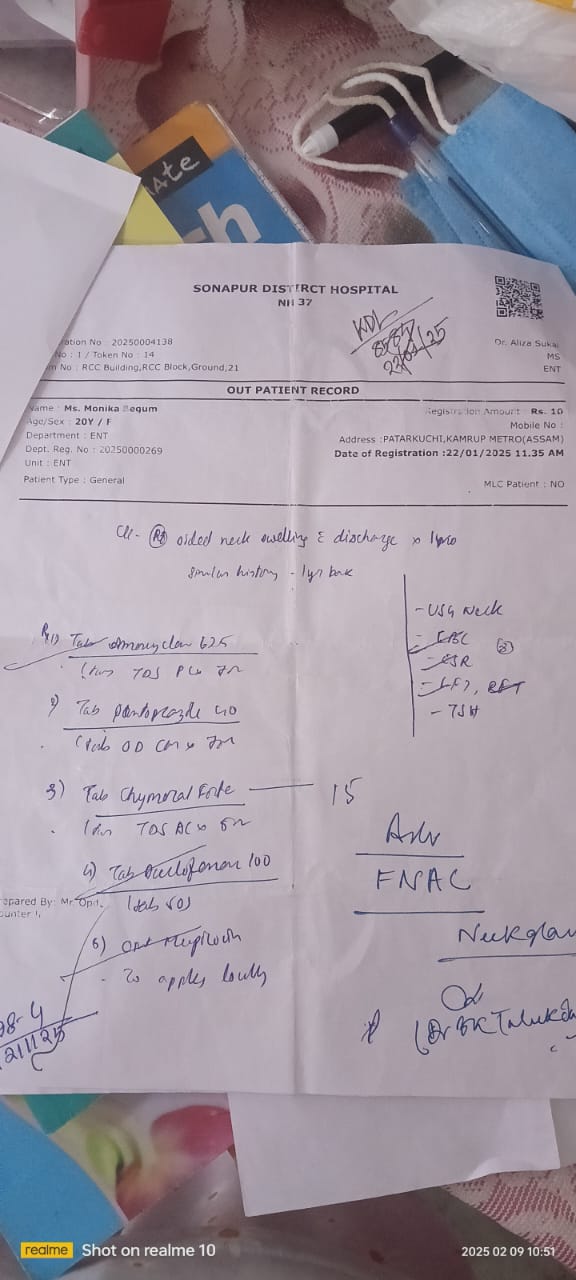 SONAPUR DISTIRCT HOSPITAL
NH 37
KDL
22/01/25
ation No : 20250004138
No : 1 / Token No : 14
m No : RCC Building,RCC Block,Ground,21
Dr. Aliza Sukai
MS
ENT
OUT PATIENT RECORD
Name : Ms. Monika Begum
Age/Sex : 20Y / F
Department : ENT
Dept. Reg. No : 20250000269
Unit : ENT
Patient Type : General
Registration Amount : Rs. 10
Mobile No :
Address :PATARKUCHI,KAMRUP METRO(ASSAM)
Date of Registration :22/01/2025 11.35 AM
MLC Patient : NO
sided neck swelling discharge x
similar history - 1yr back
- USG Neck
- CBC
- ESR
- LFT, RFT
- TSH
1) Tab Amoxyclav 625
TDS
2) Tab Pantoprazole 40
OD
3) Tab Chymoral Forte 15
TDS AC x
4) Tab Aceclofenac 100
(tab SOS)
5) Oint Mupirocin
- To apply locally
Adv
FNAC
Neck
(Dr BK Talukda
epared By: Mr. Opd,
ounter 1,
98-4
21125
ate
th
realme Shot on realme 10
2025 02 09 10:51